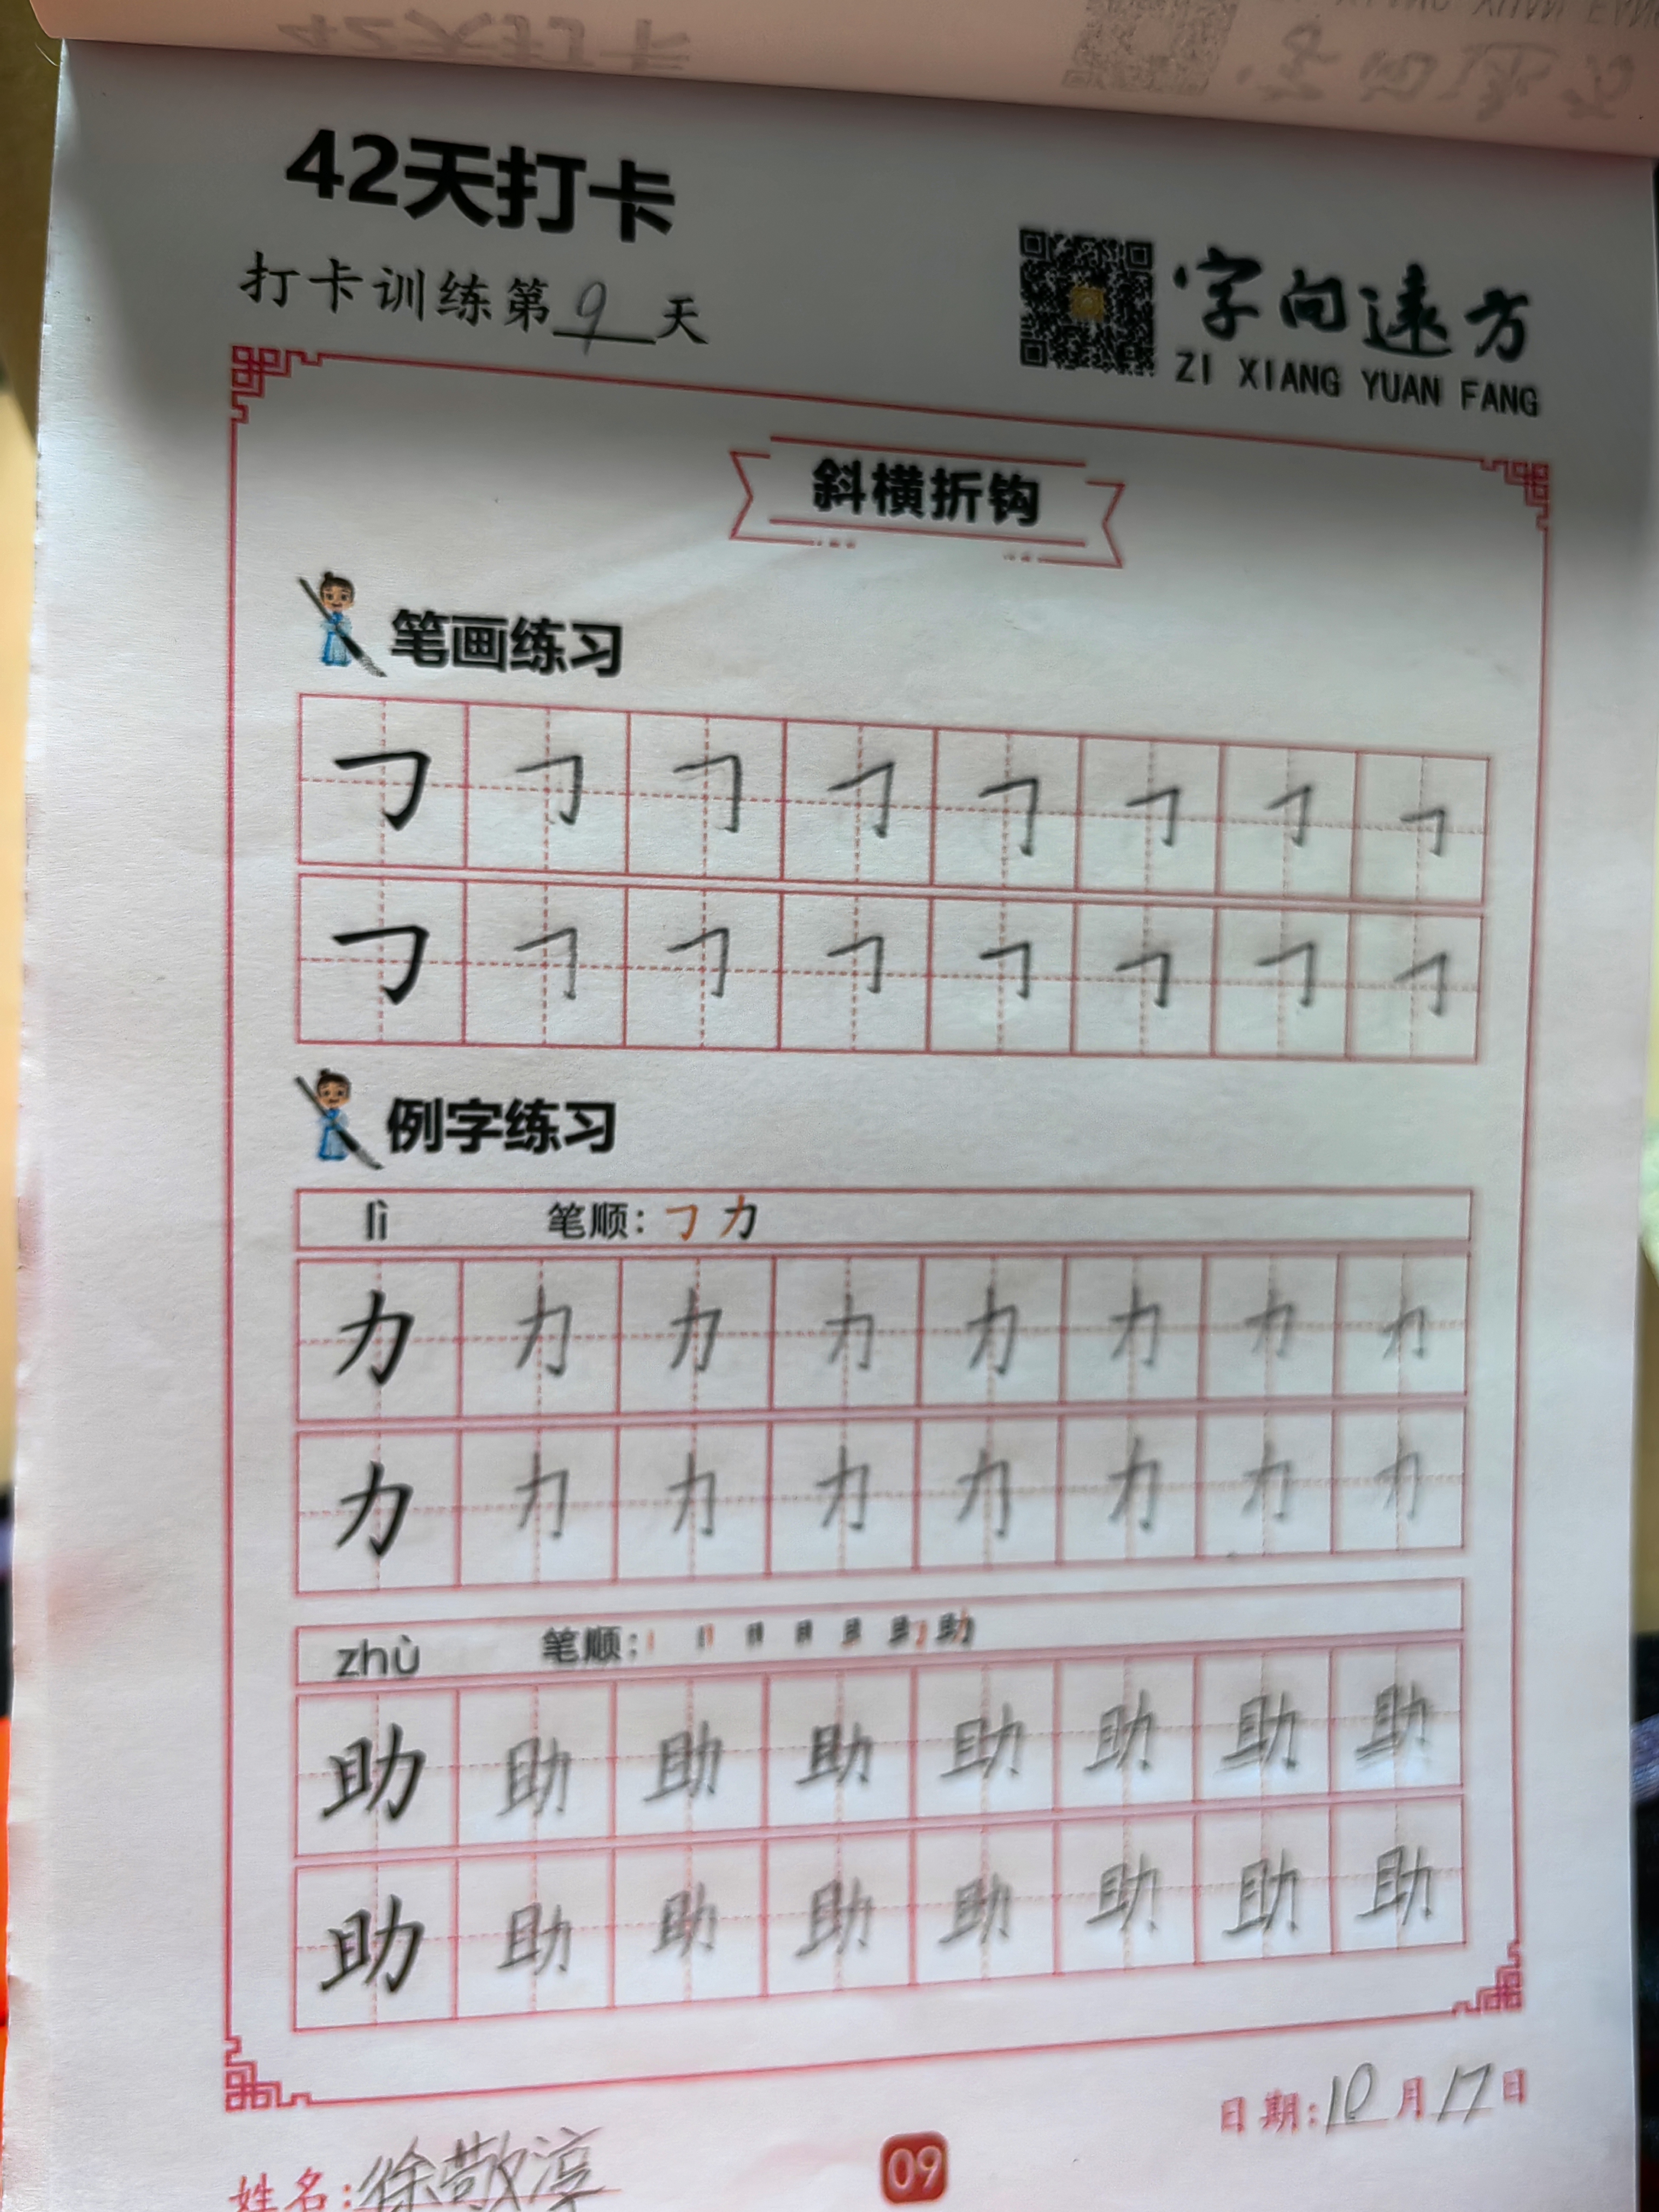 42天打卡
打卡训练第9天
字向远方
ZI XIANG YUAN FANG
斜横折钩
笔画练习
㇆ ㇆ ㇆ ㇆ ㇆ ㇆ ㇆ ㇆
㇆ ㇆ ㇆ ㇆ ㇆ ㇆ ㇆ ㇆
例字练习
lì 笔顺：㇆ 力
力 力 力 力 力 力 力 力
力 力 力 力 力 力 力 力
zhù 笔顺：
助 助 助 助 助 助 助 助
助 助 助 助 助 助 助 助
日期:10月17日
姓名:徐敬淳
09